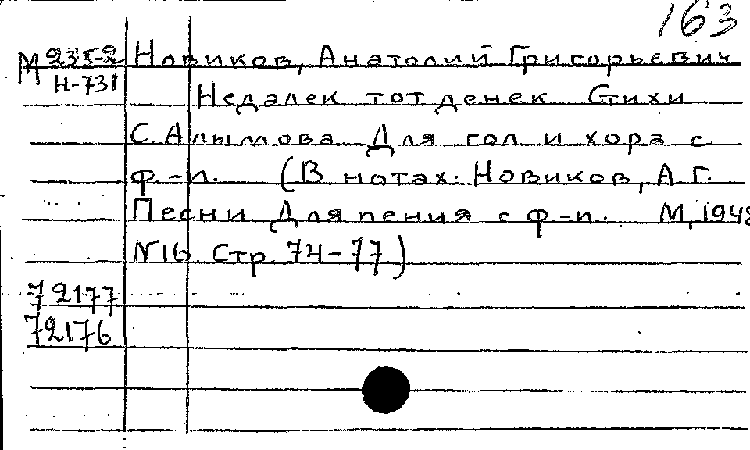 163
М 235-2 Новиков, Анатолий Григорьевич
Н-731
Недалек тот денек Стихи
С. Алымова Для гол и хора с
ф.-п. (В нотах: Новиков, А Г.
Песни Для пения с ф-п. М, 1948
N16 Стр. 74-77)
72177
72176